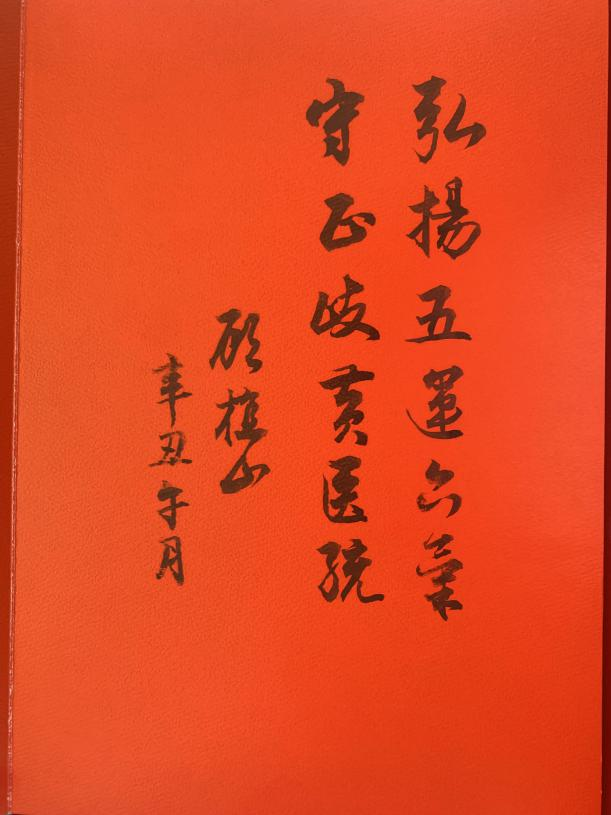 弘揚五運六氣
守正岐黄医统
顾植山
辛丑午月